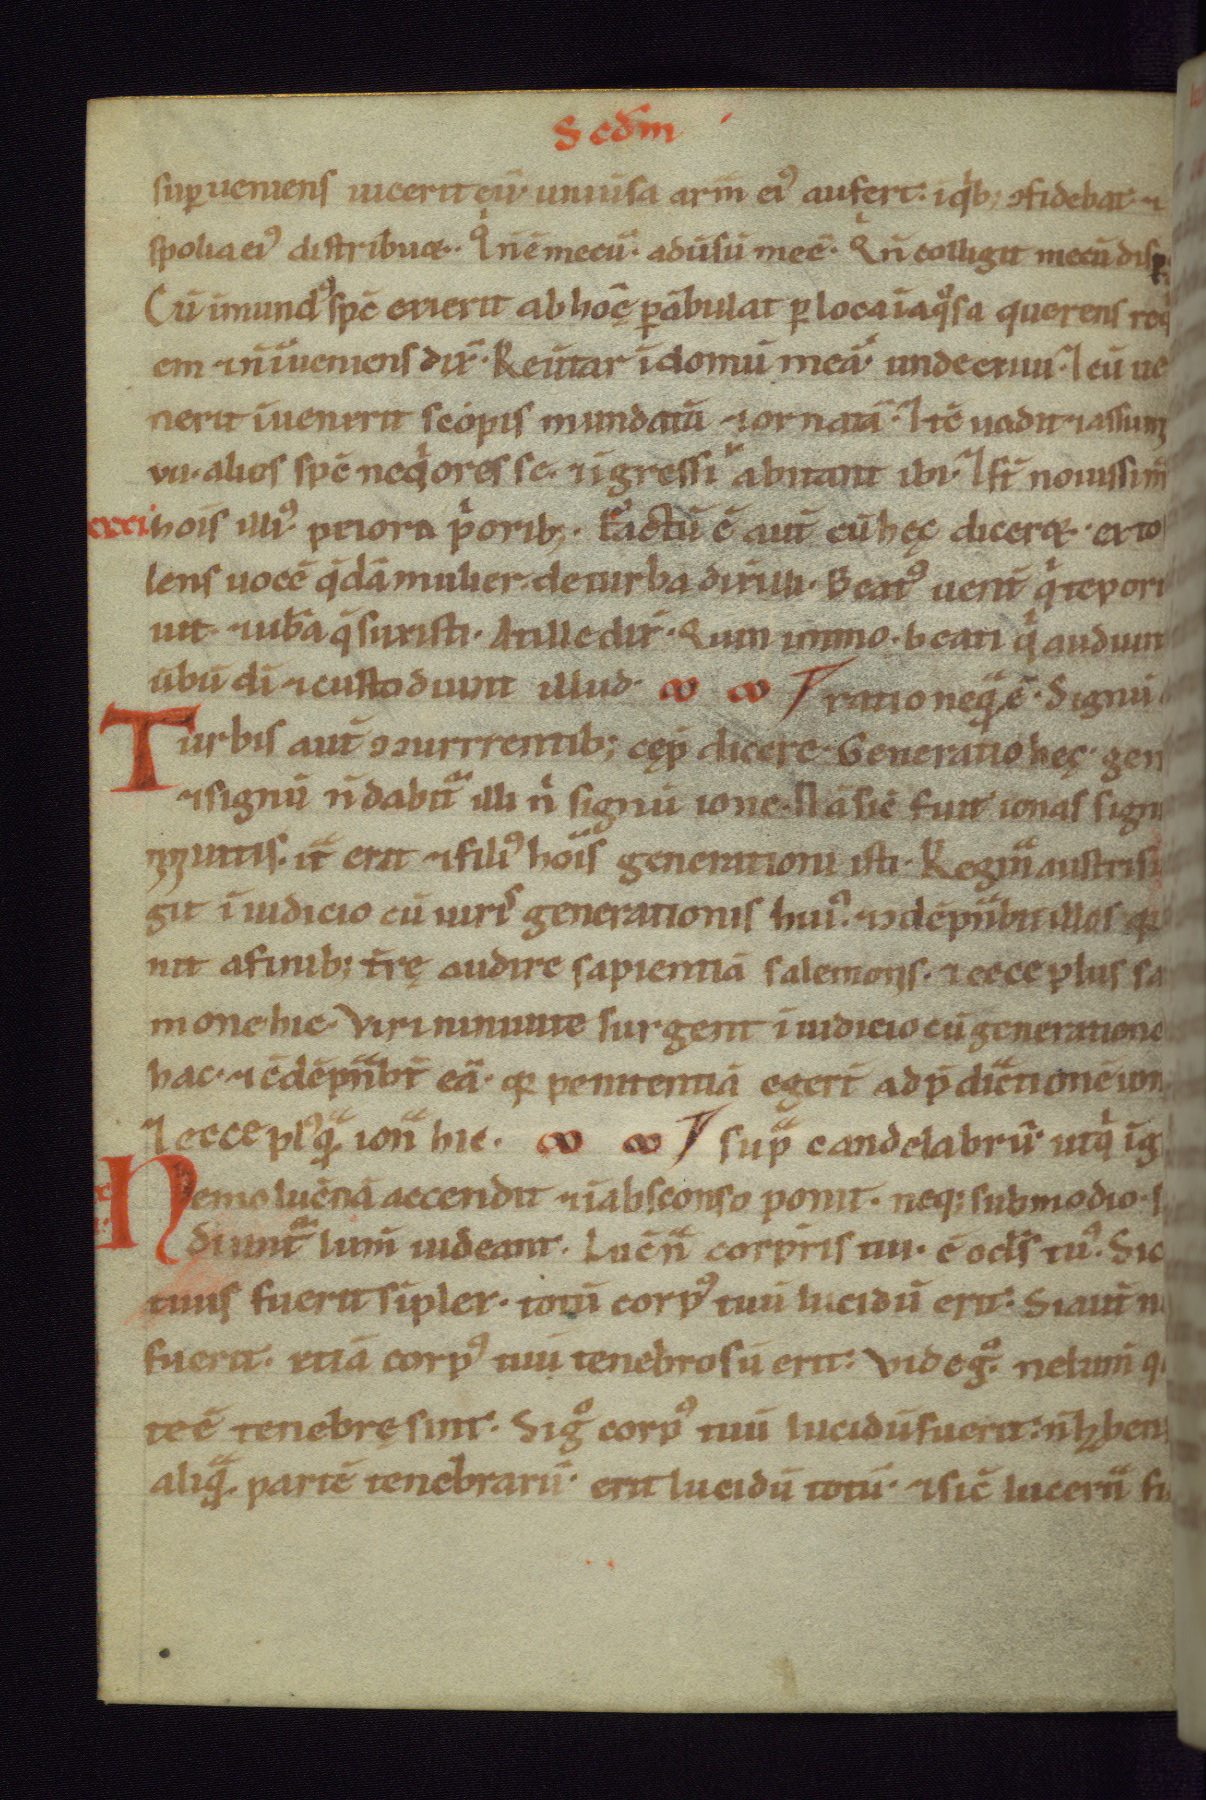 Scdm̄
suꝑueniens uicerit eū· uniūsa arm̄ eiꝰ aufert· ī qͥb; ↄfidebat· ⁊
spolia eiꝰ distribuæ· Qͥ n̄ ē mecū· adūsū me ē· Qͥ n̄ colligit mecū disp
Cū īmundꝰ spē exierit ab hoē ꝑābulat ꝑ loca īaqͦsa querens req
em ⁊ n̄ īueniens dix̄· Reūtar ī domū meā· unde exiui· ⁊ cū ue
nerit īuenerit scopis mundatū ⁊ ornatā· ⁊ tē uadit ⁊ assum
vii· alios spē neqͥores se· ⁊ īgressi abitant ibi· ⁊ s̄t nouissim̄
cxxi hois illiꝰ priora pͥorib;· Factū ē aut̄ cū hęc diceræ· exto
lens uocē q̄dā mulier de turba dix̄ illi· Beatꝰ uent̄ qͥ te pori
uit· ⁊ ub̄a q̄ suxisti· At ille dix̄· Quin immo· beati qͥ audiun
ūbū dī ⁊ custodiunt illud· ratio neq̄ ē· Signū
Turbis aut̄ ↄcurrrentib; cęp̄ dicere· Generatio hęc· gen
⁊ signū n̄ dabit̄ illi n̄ signū ione· Nā sic̄ fuit ionas sign
niuitis· it̄ erit ⁊ filiꝰ hoīs generationi isti· Regin̄ austri s
git ī iudicio cū uirꝭ generationis huiꝰ· ⁊ ↄdēpn̄bit illos q
nit a finib; t̄rę audire sapientiā salemonꝭ· ⁊ ecce plus sa
mone hic· Viri niniuite surgent ī iudicio cū generatione
hac· ⁊ ↄdēpn̄bt̄ eā· q penitentiā eger̄t ad p̄dic̄tionē ion
⁊ ecce plꝰq̄ ion̄ hic· sup̄ candelabrū· ut qͥ īg
Nemo lucēnā accendit ⁊ ī absconso ponit· neq; sub modio·
diunt̄ lum̄ uideant· Lucēn̄ corpris tui· ē oclꝭ tuꝰ· Sic
tuus fuerit sīpler· totū corpꝰ tuū lucidū erit· Si aut̄ n
fuerit· etiā corpꝰ tuū tenebrosū erit· Vide gͦ· ne lum̄ q
te ē tenebrę sint· Si gͦ corpꝰ tuū lucidū fuerit· n̄ hben
aliq̄· partē tenebrarū· erit lucidū totū· ⁊ sic̄ lucern̄ fu